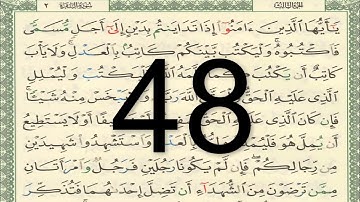 الجزء الثالث سورة البقرة ٢
يَـٰٓأَيُّهَا ٱلَّذِينَ ءَامَنُوٓا۟ إِذَا تَدَايَنتُم بِدَيْنٍ إِلَىٰٓ أَجَلٍ مُّسَمًّى
فَٱكْتُبُوهُ ۚ وَلْيَكْتُب بَّيْنَكُمْ كَاتِبٌۢ بِٱلْعَدْلِ ۚ وَلَا يَأْبَ
كَاتِبٌ أَن يَكْتُبَ ٱللَّهُ ۚ فَلْيَكْتُبْ وَلْيُمْلِلِ
ٱلَّذِى عَلَيْهِ ٱلْحَقُّ ٱللَّهَ يَبْخَسْ مِنْهُ شَيْـًٔا ۚ
فَإِن كَانَ ٱلَّذِى عَلَيْهِ أَوْ لَا يَسْتَطِيعُ
أَن يُمِلَّ هُوَ فَلْيُمْلِلْ وَٱسْتَشْهِدُوا۟ شَهِيدَيْنِ
مِن رِّجَالِكُمْ ۖ فَإِن لَّمْ يَكُونَا رَجُلَيْنِ فَرَجُلٌ وَٱمْرَأَتَانِ
مِمَّن تَرْضَوْنَ مِنَ ٱلشُّهَدَآءِ أَن تَضِلَّ إِحْدَىٰهُمَا فَتُذَكِّرَ
48